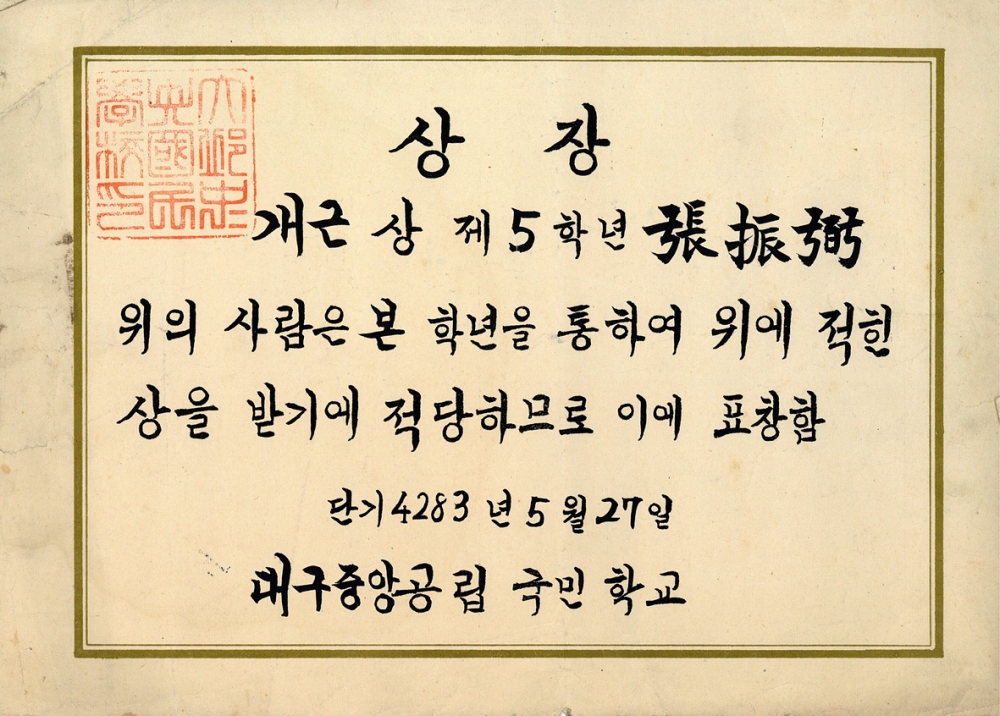 상장
개근 상 제 5 학년 張振弼
위의 사람은 본 학년을 통하여 위에 적힌
상을 받기에 적당하므로 이에 표창함
단기 4283 년 5 월 27 일
대구중앙공립 국민 학교